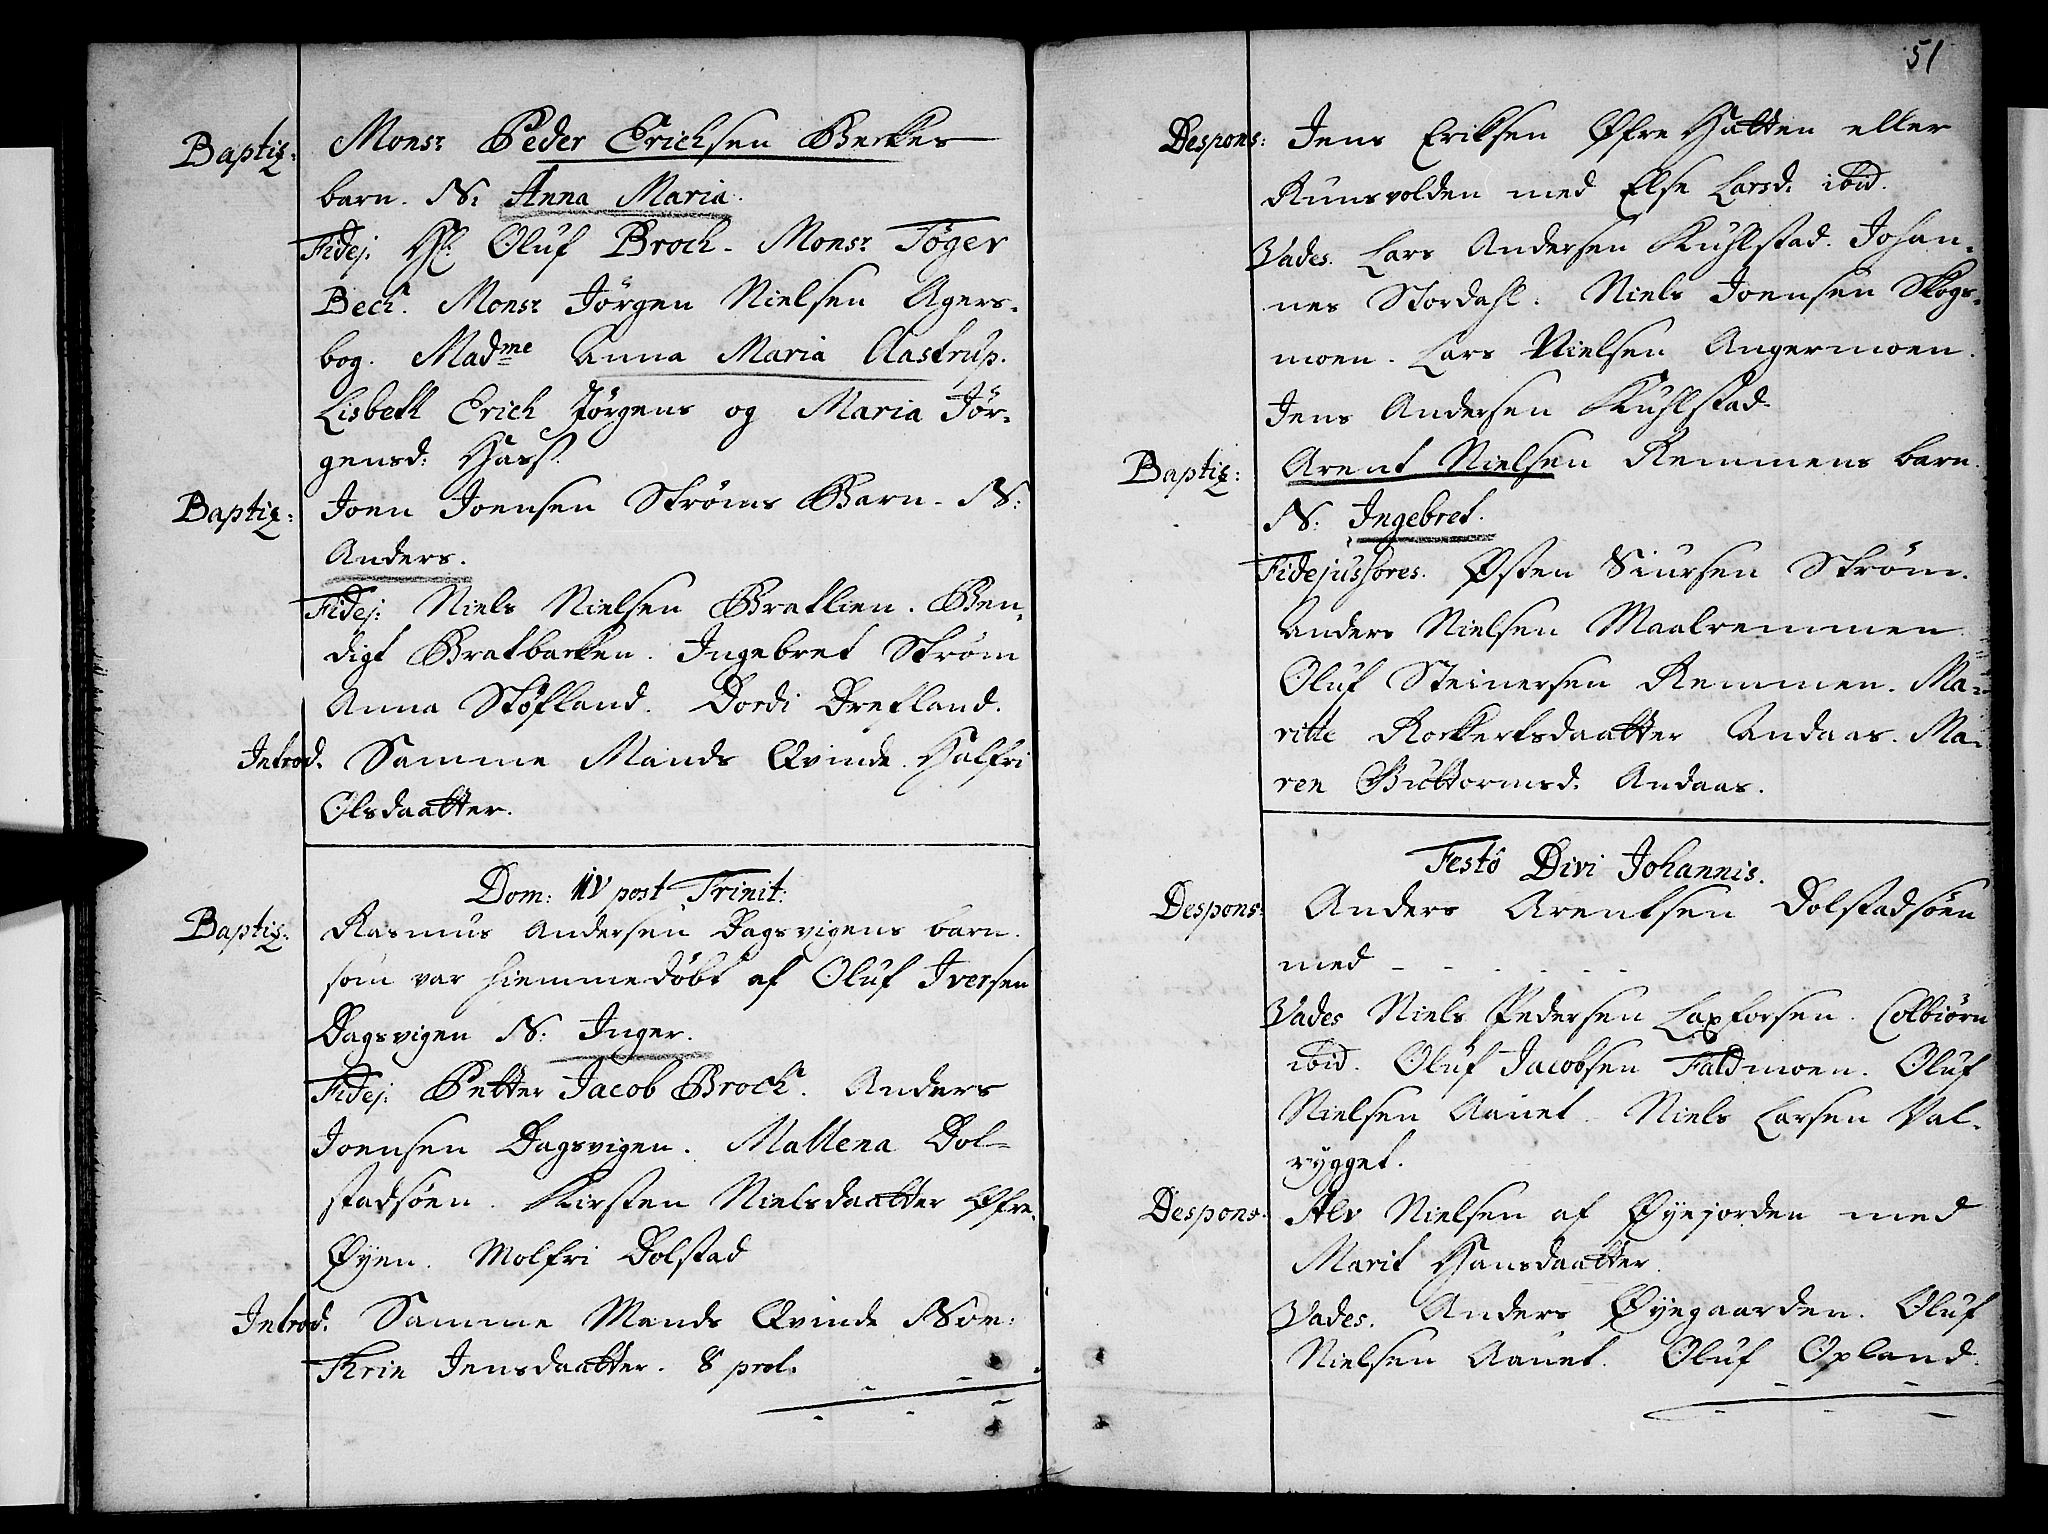 Baptiz: Monsr Peder Erichsen Beckes
barn. N: Anna Maria.
Fidej: Hl. Oluf Broch. Monsr Töger
Bech. Monsr Jörgen Nielsen Agers-
bog. Madme Anna Maria Aastrup.
Lisbeth Erich Jörgens og Maria Jör-
gensd: Hass.
Baptiz: Joen Joensen Ströms Barn. N:
Anders.
Fidej: Niels Nielsen Bratlien. Ben-
digt Bratbacken. Ingebret Ström
Anna Stöfland. Dordi Drefland.
Introd. Samme Mands Qvinde. Halfri
Olsdaatter.
Dom: IV post Trinit:
Baptiz: Rasmus Andersen Dagsvigens barn.
som var hiemmedöbt af Oluf Iversen
Dagsvigen N: Inger.
Fidej: Petter Jacob Broch. Anders
Joensen Dagsvigen. Mallena Dol-
stadsöen. Kirsten Nielsdaatter Øfre-
Øyen. Molfri Dolstad
Introd. Samme Mands Qvinde Nom:
Thrin Jensdaatter. 8 prol.
51
Despons: Jens Eriksen Øfre Hatten eller
Runsvolden med Else Larsd: ibid.
Vades. Lars Andersen Kuhlstad. Johan-
nes Stordahl. Niels Joensen Skogs-
moen. Lars Nielsen Angermoen.
Jens Andersen Kuhlstad.
Baptiz: Arent Nielsen Remmens barn.
N: Ingebret.
Fidejussores. Østen Siursen Ström.
Anders Nielsen Maalremmen
Oluf Steinersen Remmen. Ma-
ritte Rockertsdaatter Andaas. Ma-
ren Guttormsd. Andaas.
Festo Divi Johannis.
Despons: Anders Arentsen Dolstadsöen
med - - - - - -
Vades Niels Pedersen Laxforsen. Colbiörn
ibid. Oluf Jacobsen Faldmoen. Oluf
Nielsen Aanet. Niels Larsen Val-
rygget.
Despons: Alv Nielsen af Øyejorden med
Marit Hansdaatter.
Vades. Anders Øyegaarden. Oluf
Nielsen Aanet. Oluf Opland.